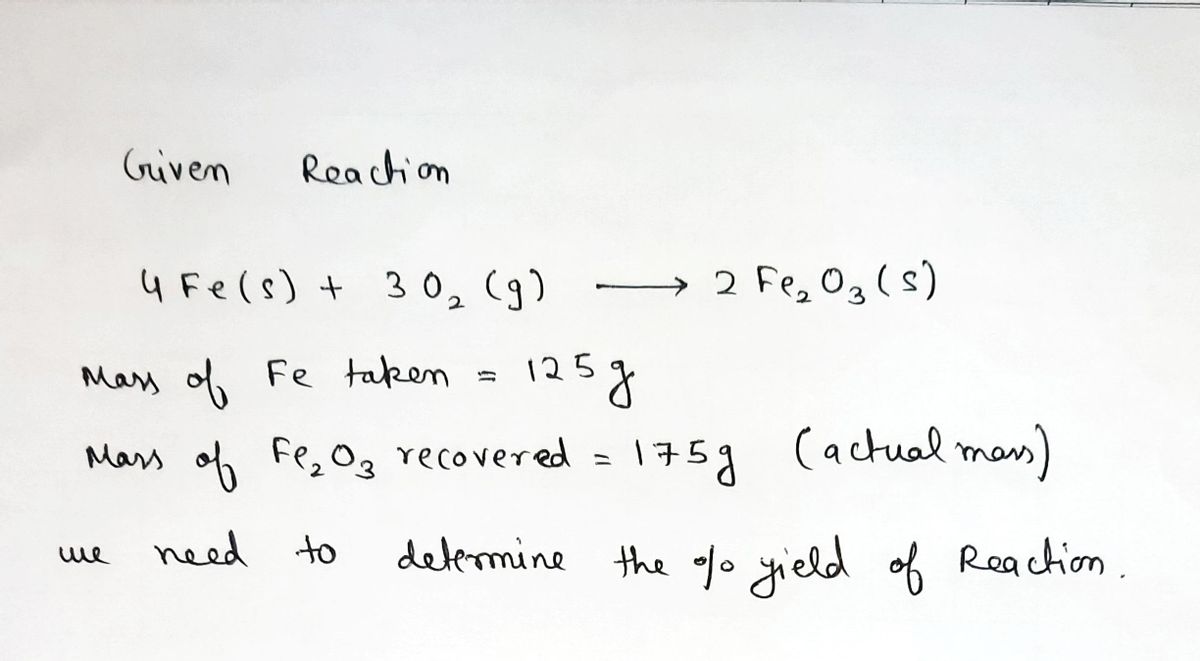 Given Reaction
4 Fe(s) + 3 O₂ (g) ⟶ 2 Fe₂O₃(s)
Mass of Fe taken = 125g
Mass of Fe₂O₃ recovered = 175g (actual mass)
we need to determine the % yield of Reaction.